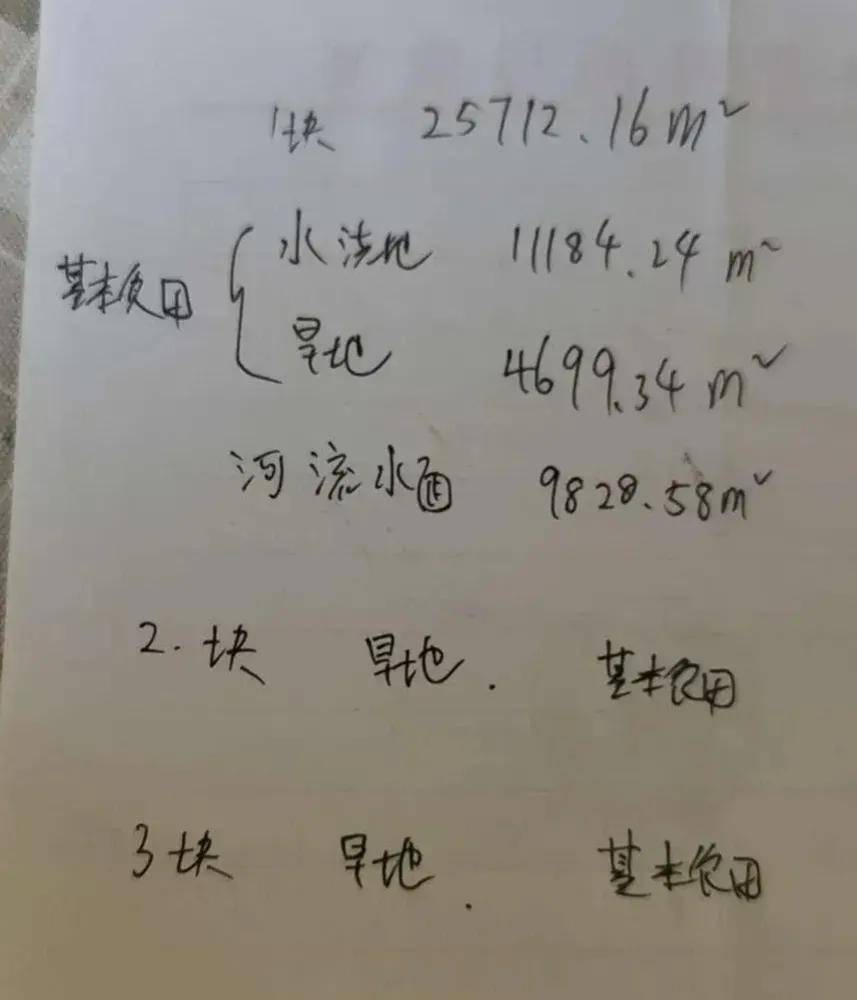 1块 25712.16m²
水浇地 11184.24 m²
基本农田
旱地 4699.34 m²
河流水面 9828.58m²
2.块 旱地. 基本农田
3块 旱地. 基本农田